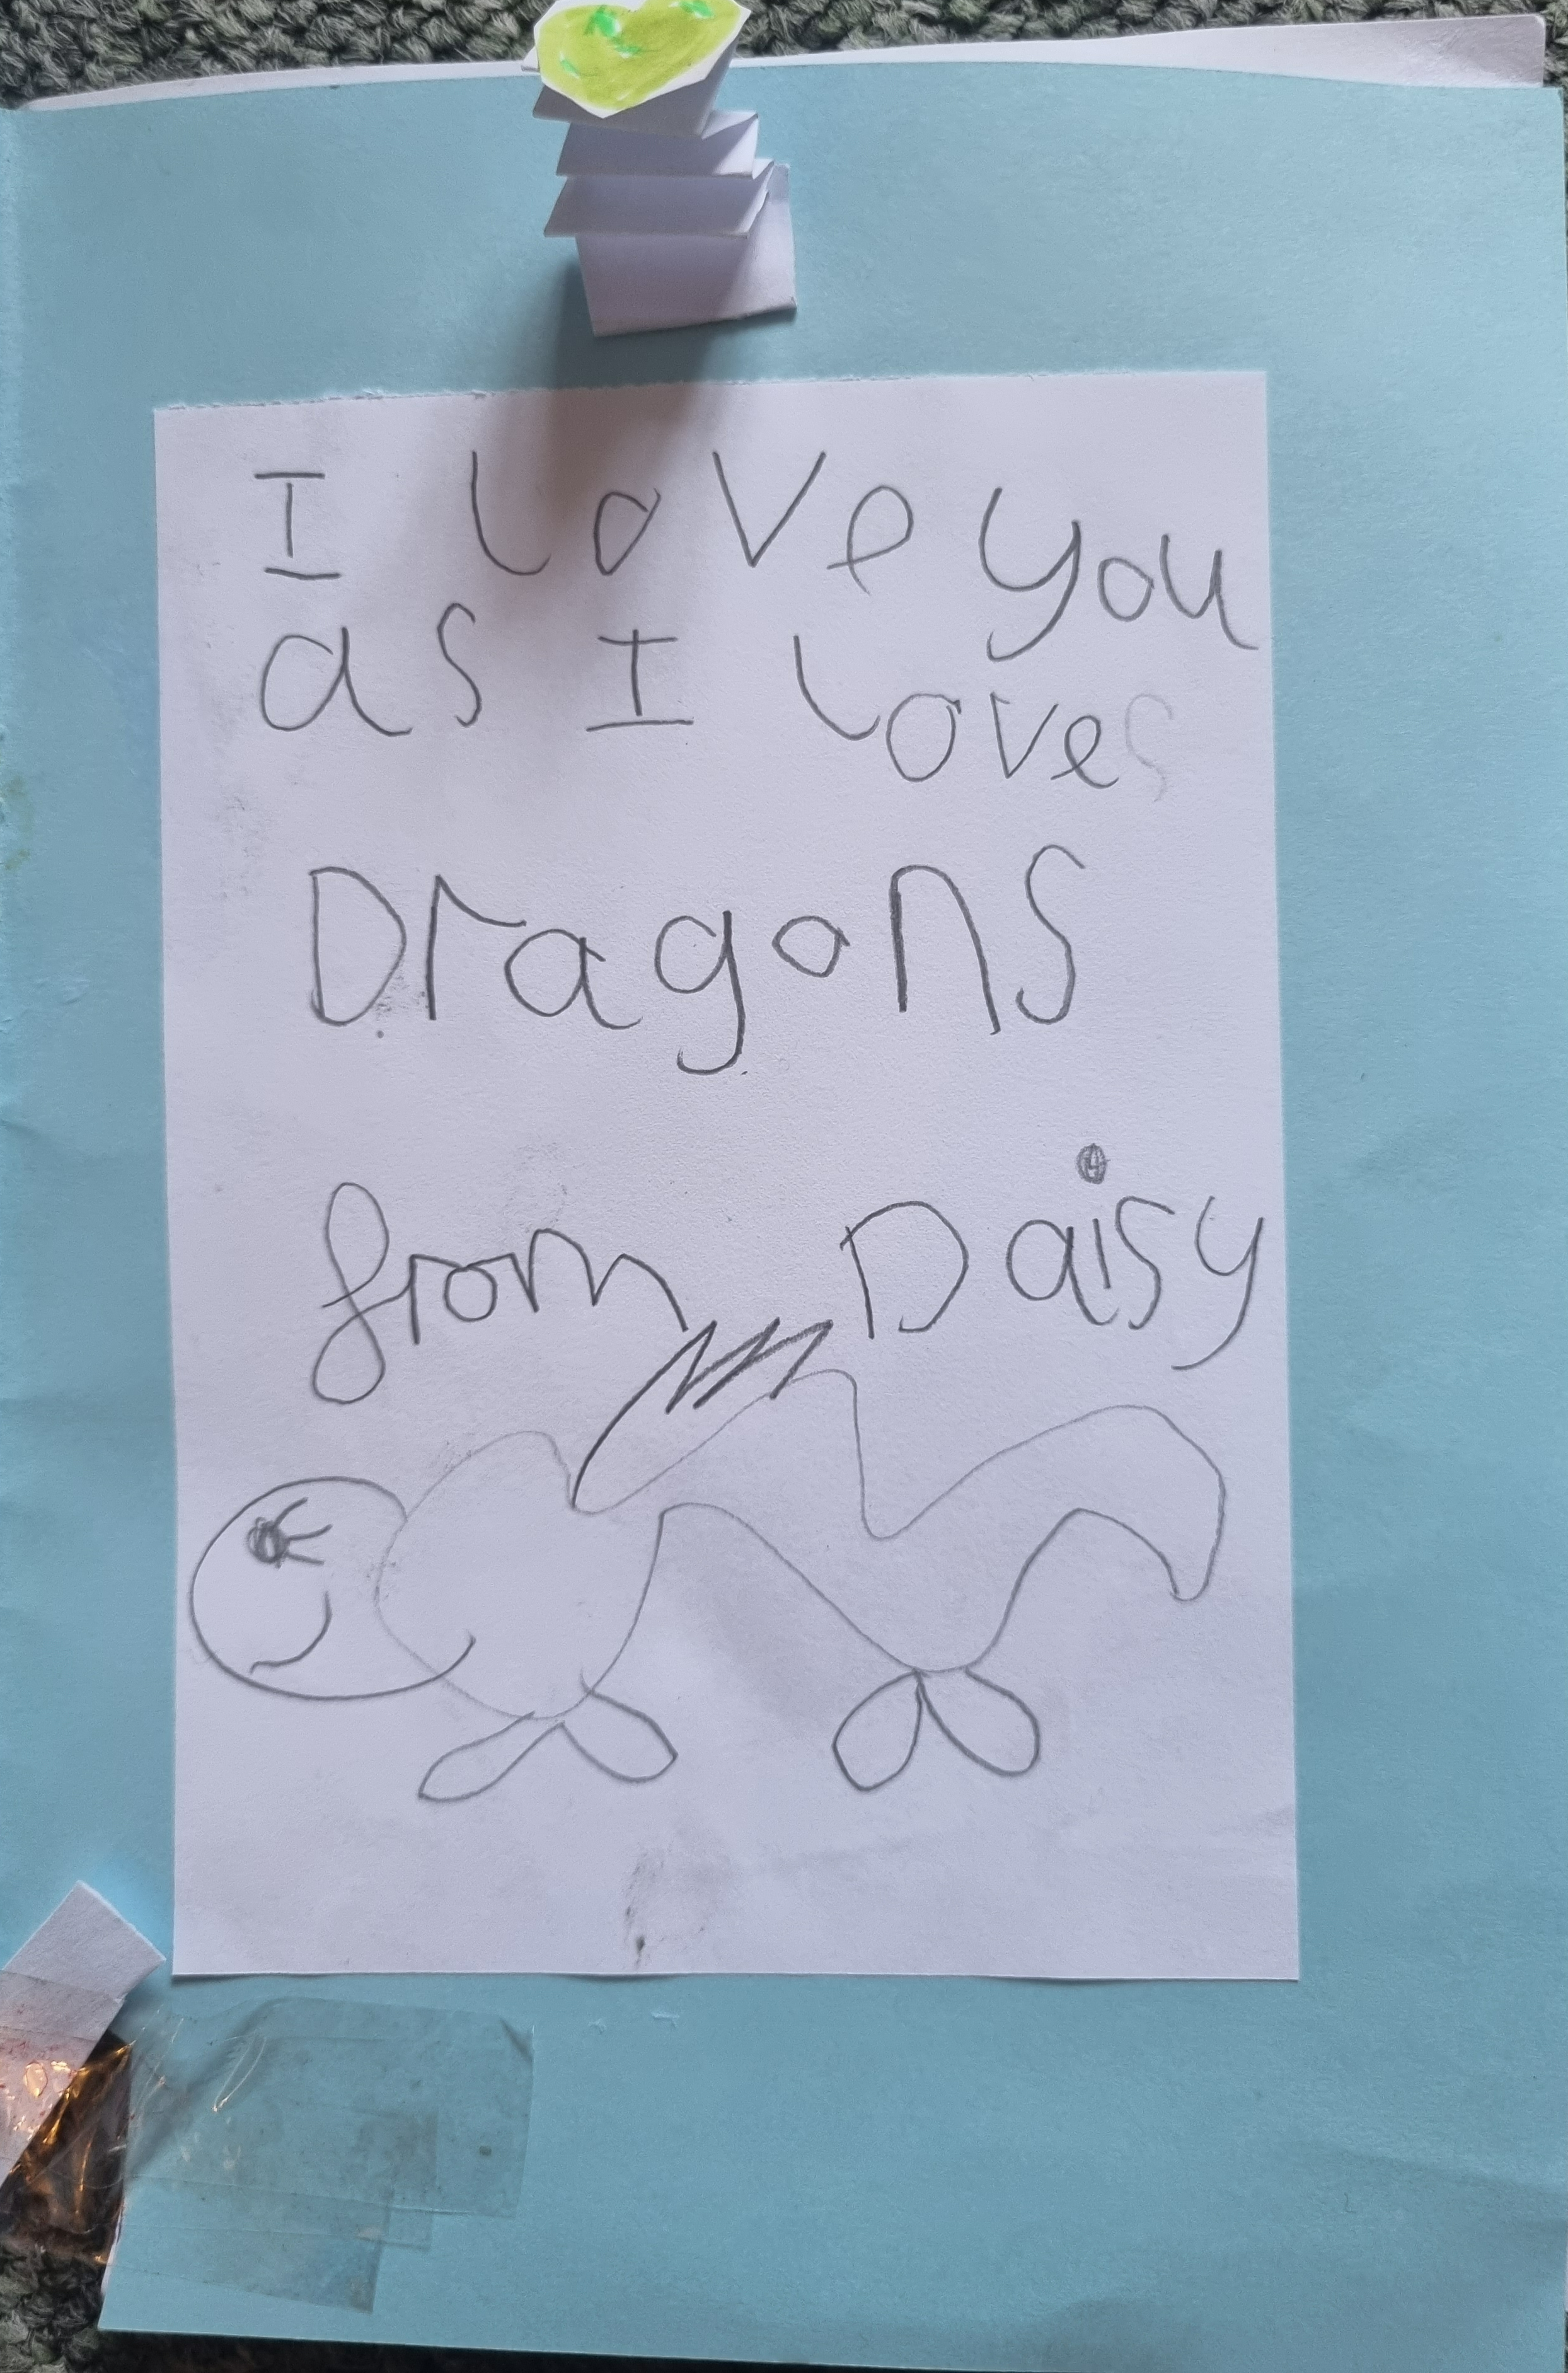 I love you
as I loves
Dragons
from Daisy